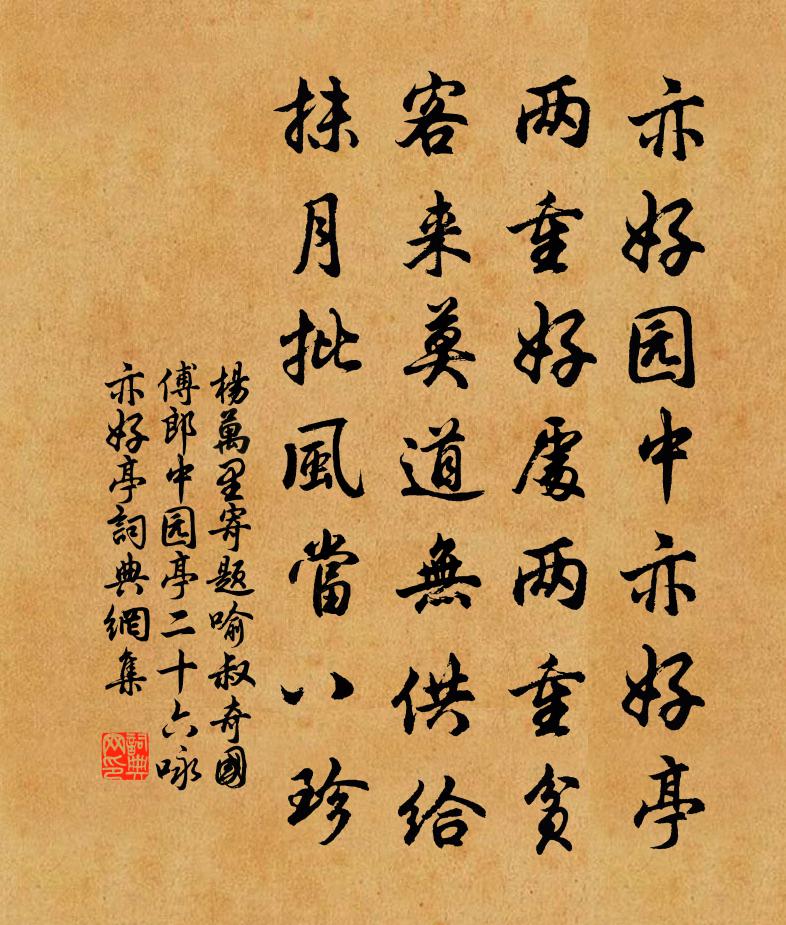 亦好园中亦好亭
两重好處两重貧
客来莫道無供給
抹月批風當八珍
楊萬里寄題喻叔奇國
傅郎中园亭二十六咏
亦好亭詞典網集
詞典網印